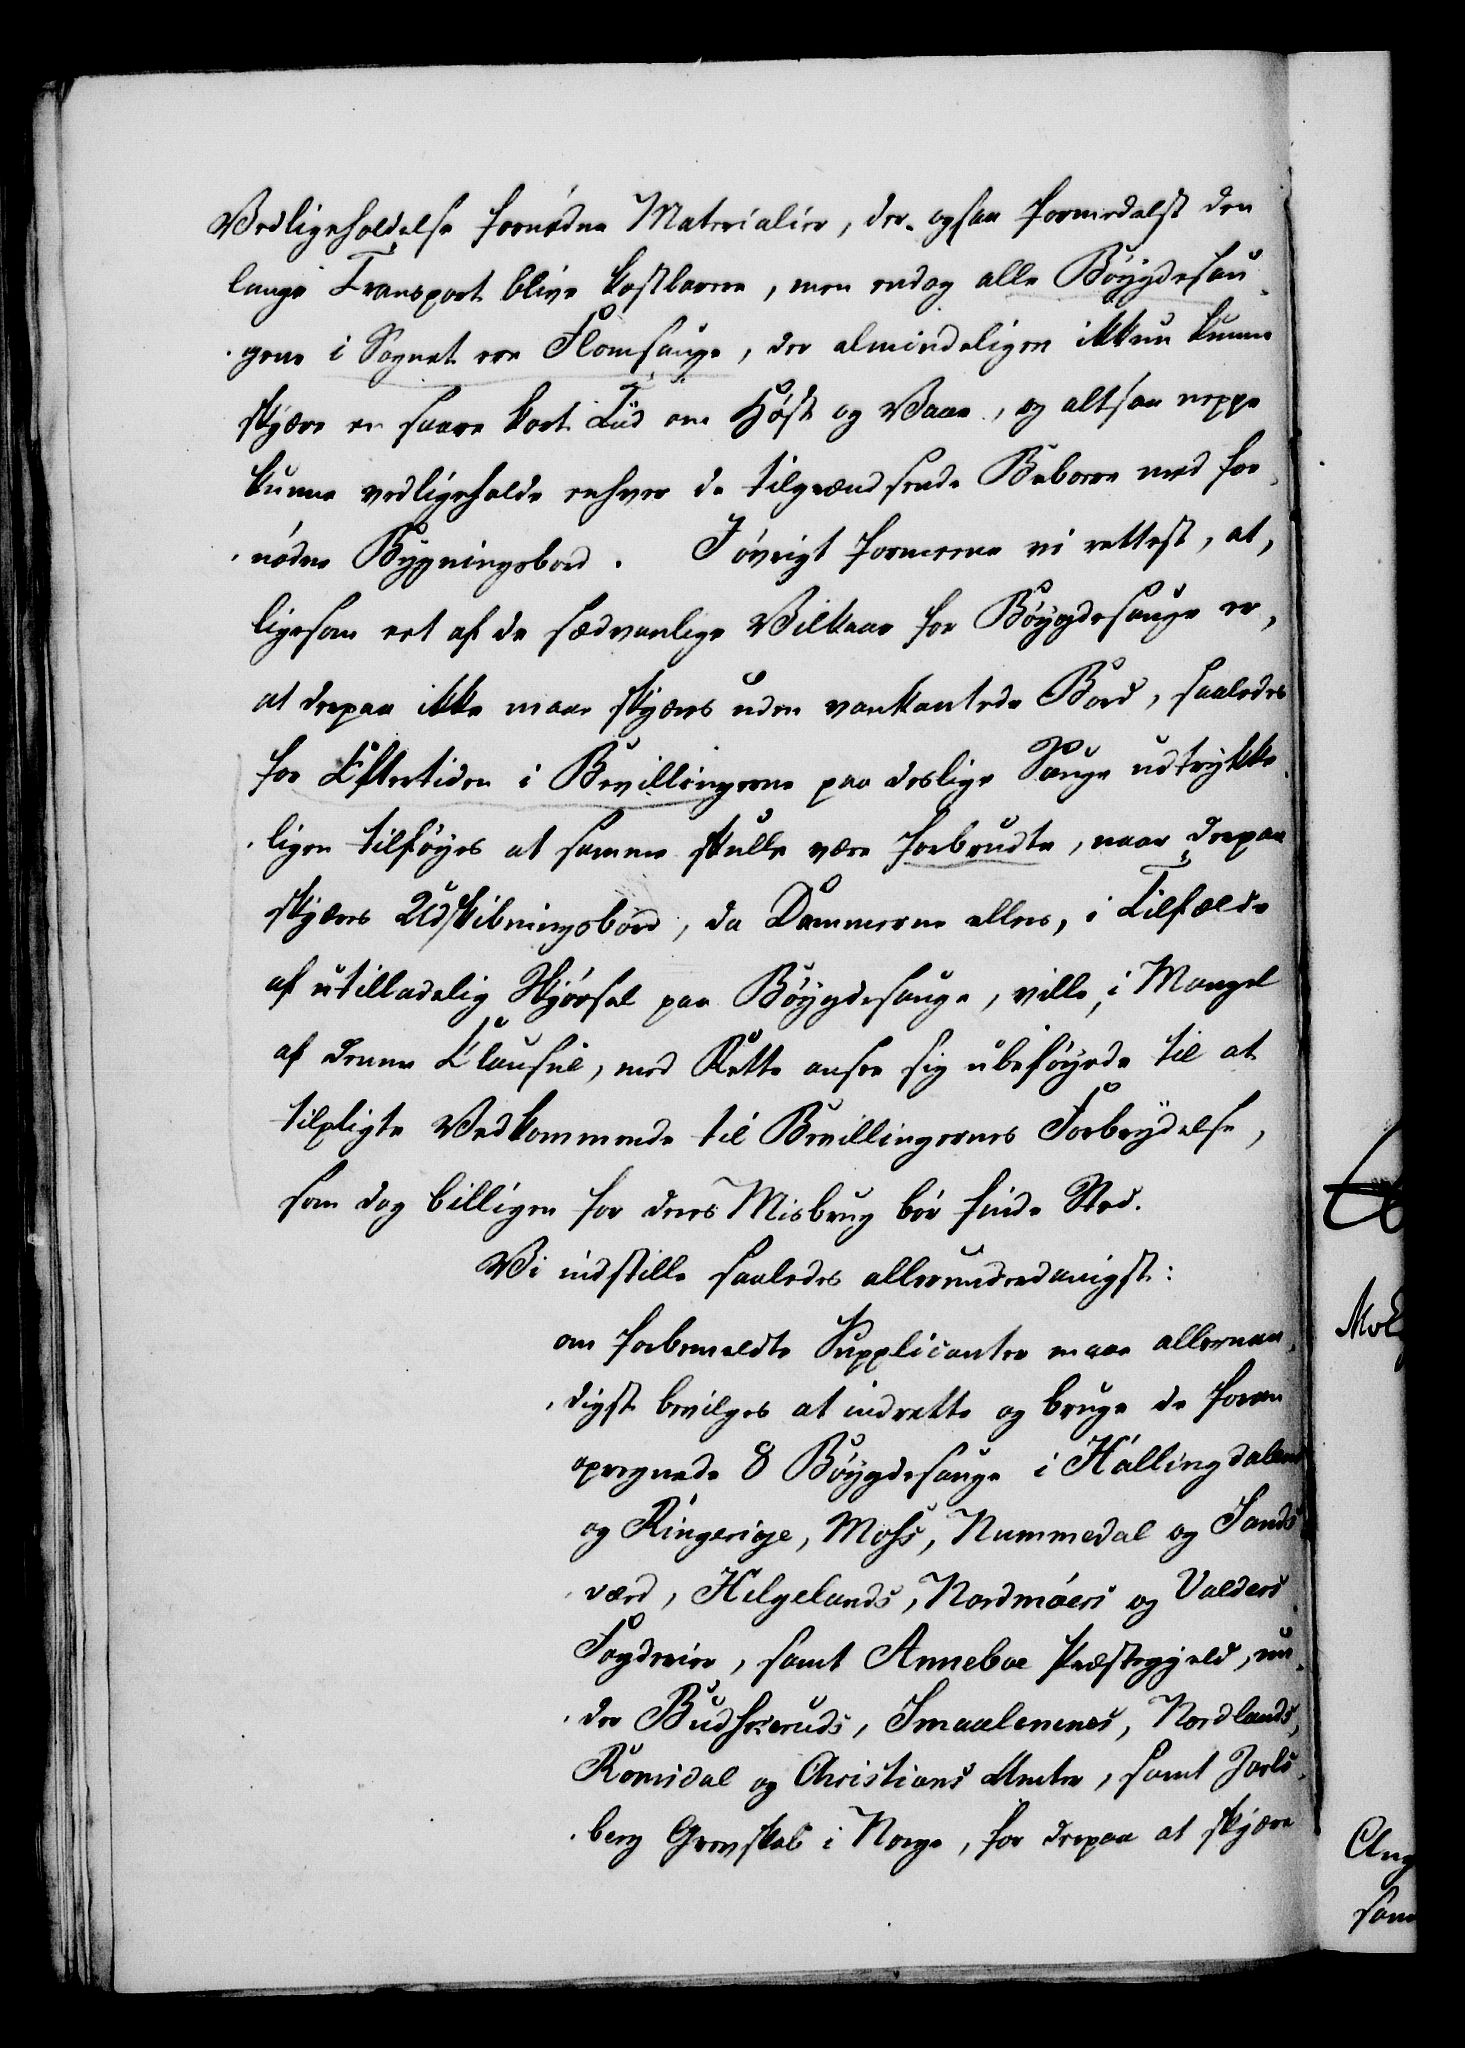 Vedligeholdelse fornødne Materialier, der ogsaa formedelst den
lange Transport blive kostbarere, men endog alle Bøygdesau-
gene i Sognet ere Flomsauge, der almindeligen ikkun kunne
skjære en saare kort Tiid om Høst og Vaar, og altsaa neppe
kunne vedligeholde enhver de tilgrændsende Beboere med for-
nødne Bygningsbord. Iøvrigt formeene vi rettest, at,
ligesom eet af de sædvanlige Vilkaar for Bøygdesauge er,
at derpaa ikke maae skjæres uden vankantede Bord, saaledes
for Eftertiden i Bevillingerne paa deslige Sauge udtrykke-
ligen tilføyes at samme skulle være forbrudte, naar derpaa
skjæres Udskibningsbord, da Dommerne ellers, i Tilfælde
af utilladelig Skjørsel paa Bøygdesauge, ville, i Mangel
af denne Clausul, med Rette ansee sig ubeføyede til at
tilpligte Vedkommende til Bevillingernes Forbrydelse,
som dog billigen for deres Misbrug bør finde Sted.
Vi indstille saaledes allerunderdanigst:
om forbemeldte Supplicanter maae allernaa-
digst bevilges at indrette og bruge de foran
opregnede 8 Bøygdesauge i Hallingdalens
og Ringerige, Moss, Nummedal og Sands-
værd, Helgelands, Nordmøers og Valders
Fogderier, samt Anneboe Præstegjeld, un-
der Budseruds, Smaalenenes, Nordlands,
Romsdal og Christians Amter, samt Jarls-
berg Grevskab i Norge, for derpaa at skjære